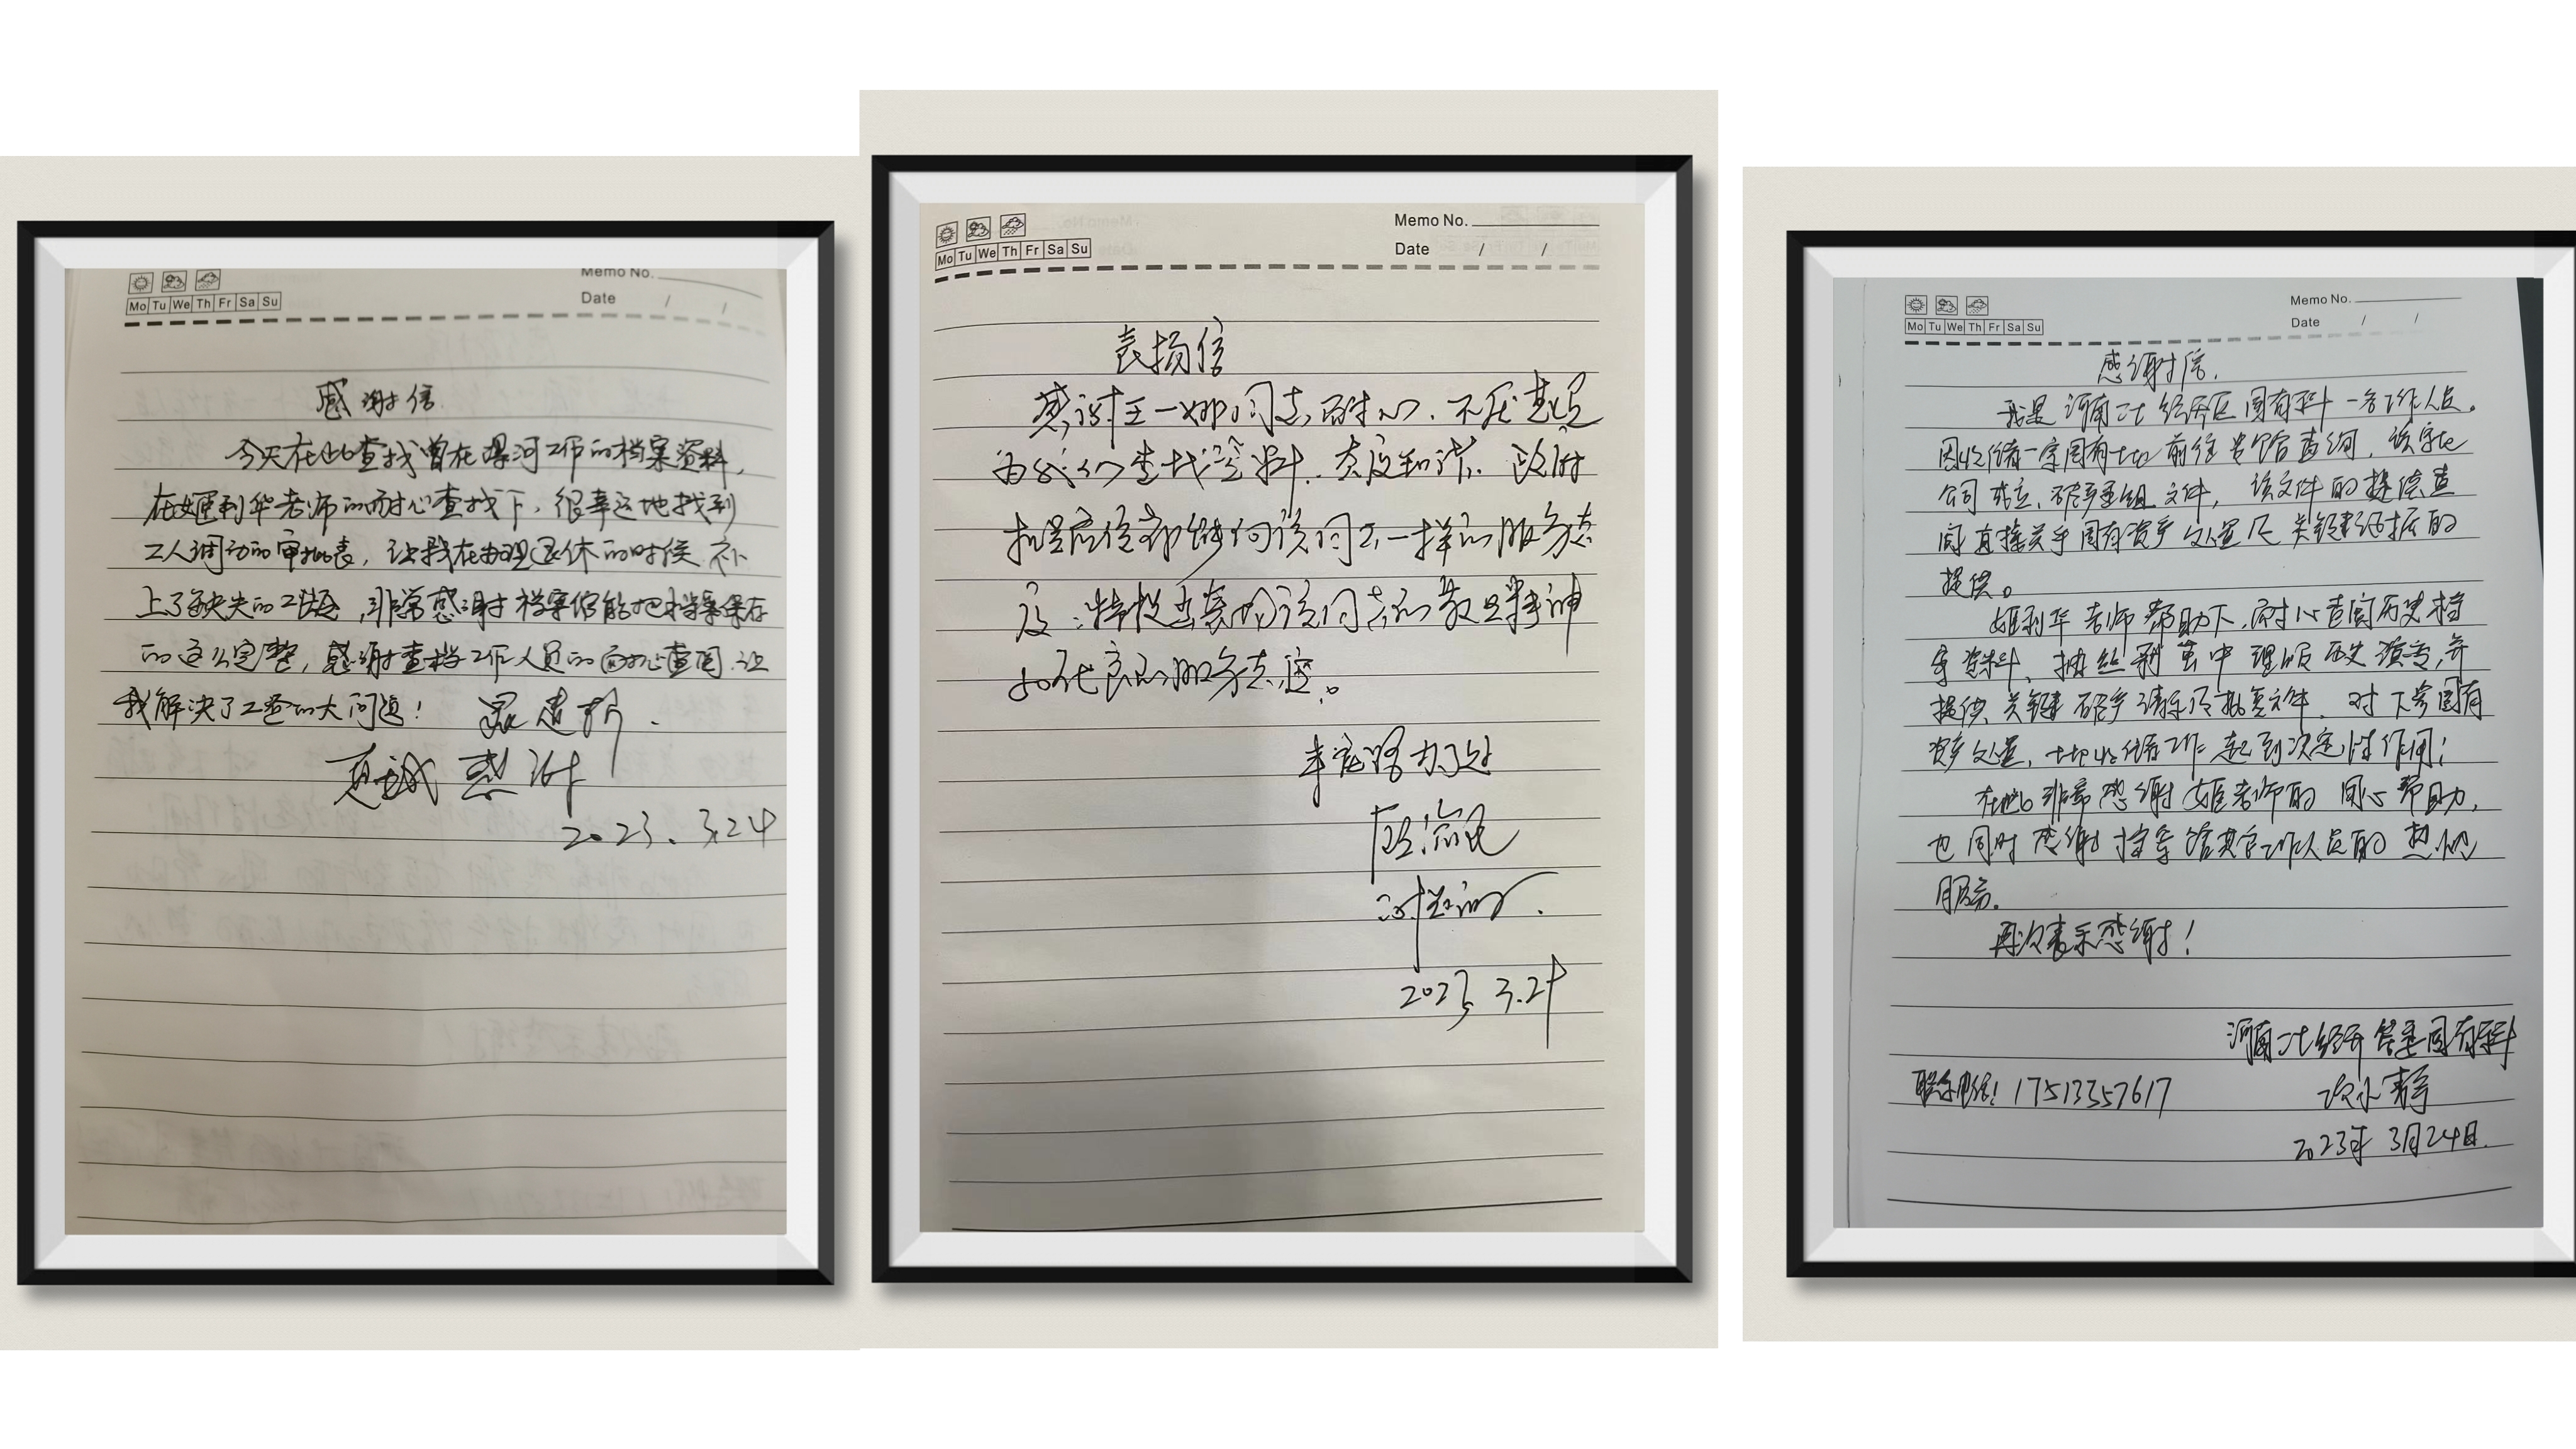 Memo No.
Mo Tu We Th Fr Sa Su
Date / /
感谢信
今天在此查找曾在漯河工作的档案资料，
在姬利华老师的耐心查找下，很幸运地找到
工人调动的审批表，让我在办理退休的时候补
上了缺失的工龄，非常感谢档案馆能把档案保存
的这么完整，感谢查档工作人员的耐心查阅，让
我解决了工龄的大问题！
真诚感谢
2023.3.24
Memo No.
Mo Tu We Th Fr Sa Su
Date / /
表扬信
感谢王一娜同志耐心、不厌其烦
为我们查找资料，态度和蔼、政府
机关应该都做向该同志一样的服务态
度，特提出表扬该同志的敬业精神
和优良的服务态度。
办事处
2023 3.24
Memo No.
Mo Tu We Th Fr Sa Su
Date / /
感谢信.
我是河南二七经开区国有科一名工作人员。
因收储一宗国有土地前往贵馆查询，该宗地
公司成立、破产重组文件，该文件的提供查
阅直接关乎国有资产处置及关键证据的
提供。
姬利华老师帮助下，耐心查阅历史档
案资料，抽丝剥茧中理顺历史演变，并
提供关键破产请示及批复文件，对下步国有
资产处置，土地收储工作起到决定性作用；
在此非常感谢姬老师的同心帮助，
也同时感谢档案馆其它工作人员的热心
服务.
再次表示感谢！
河南二七经开管委国有科
联系电话：17513357617
2023年3月24日.